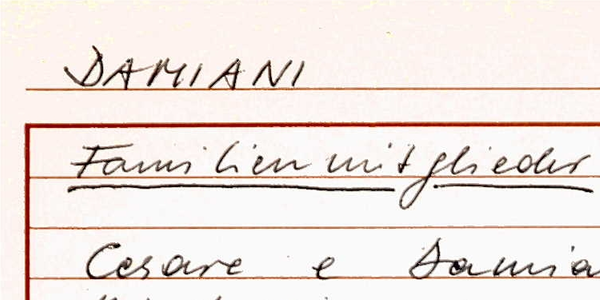 DAMIANI
Familienmitglieder
Cesare e Damia